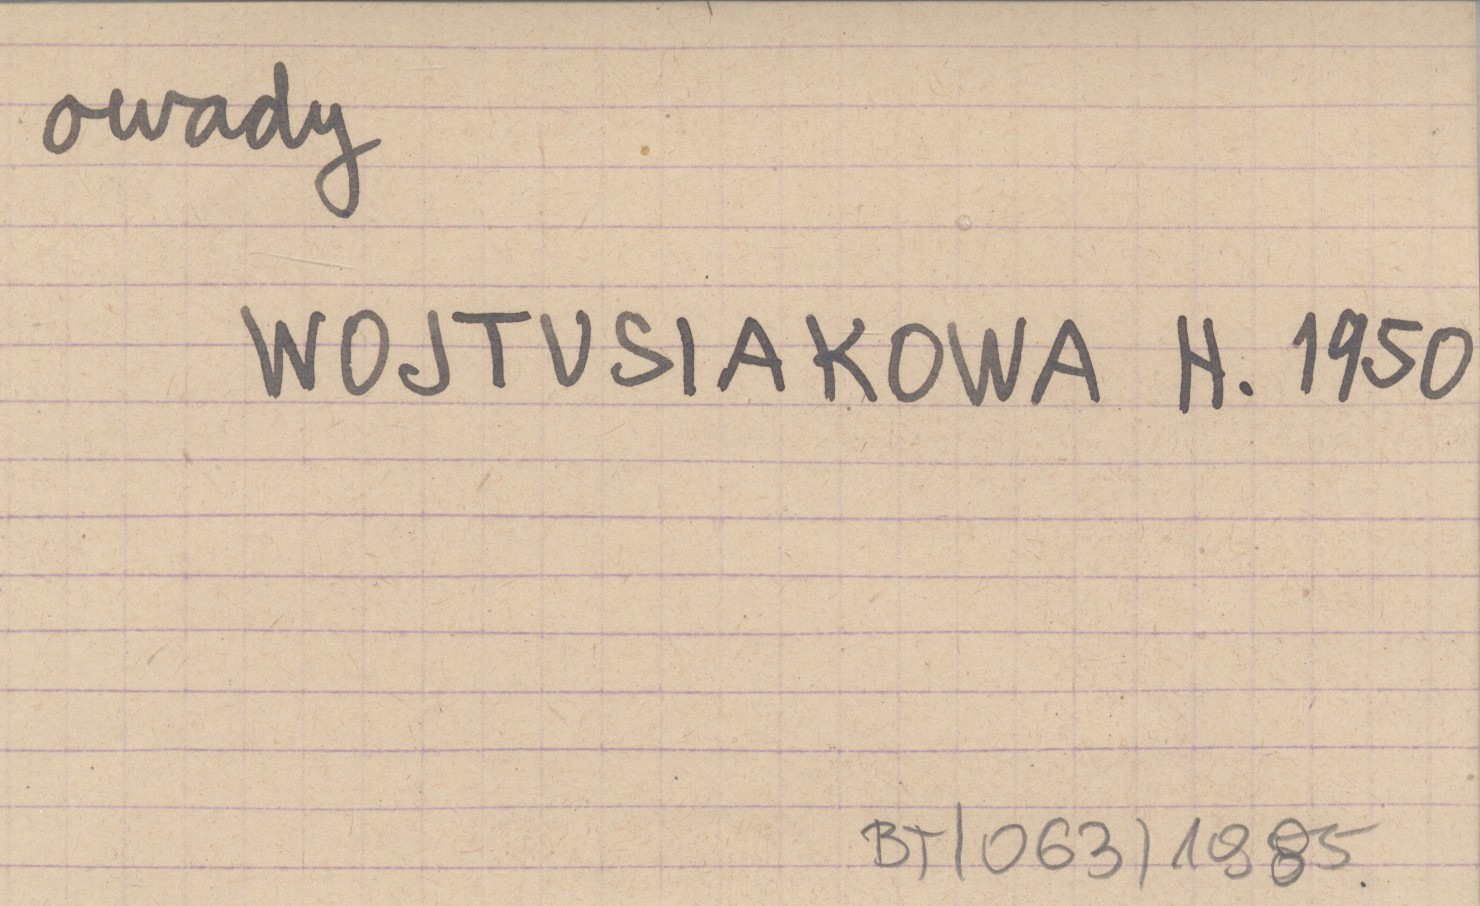 owady
WOJTUSIAKOWA H. 1950
BT/063/1985